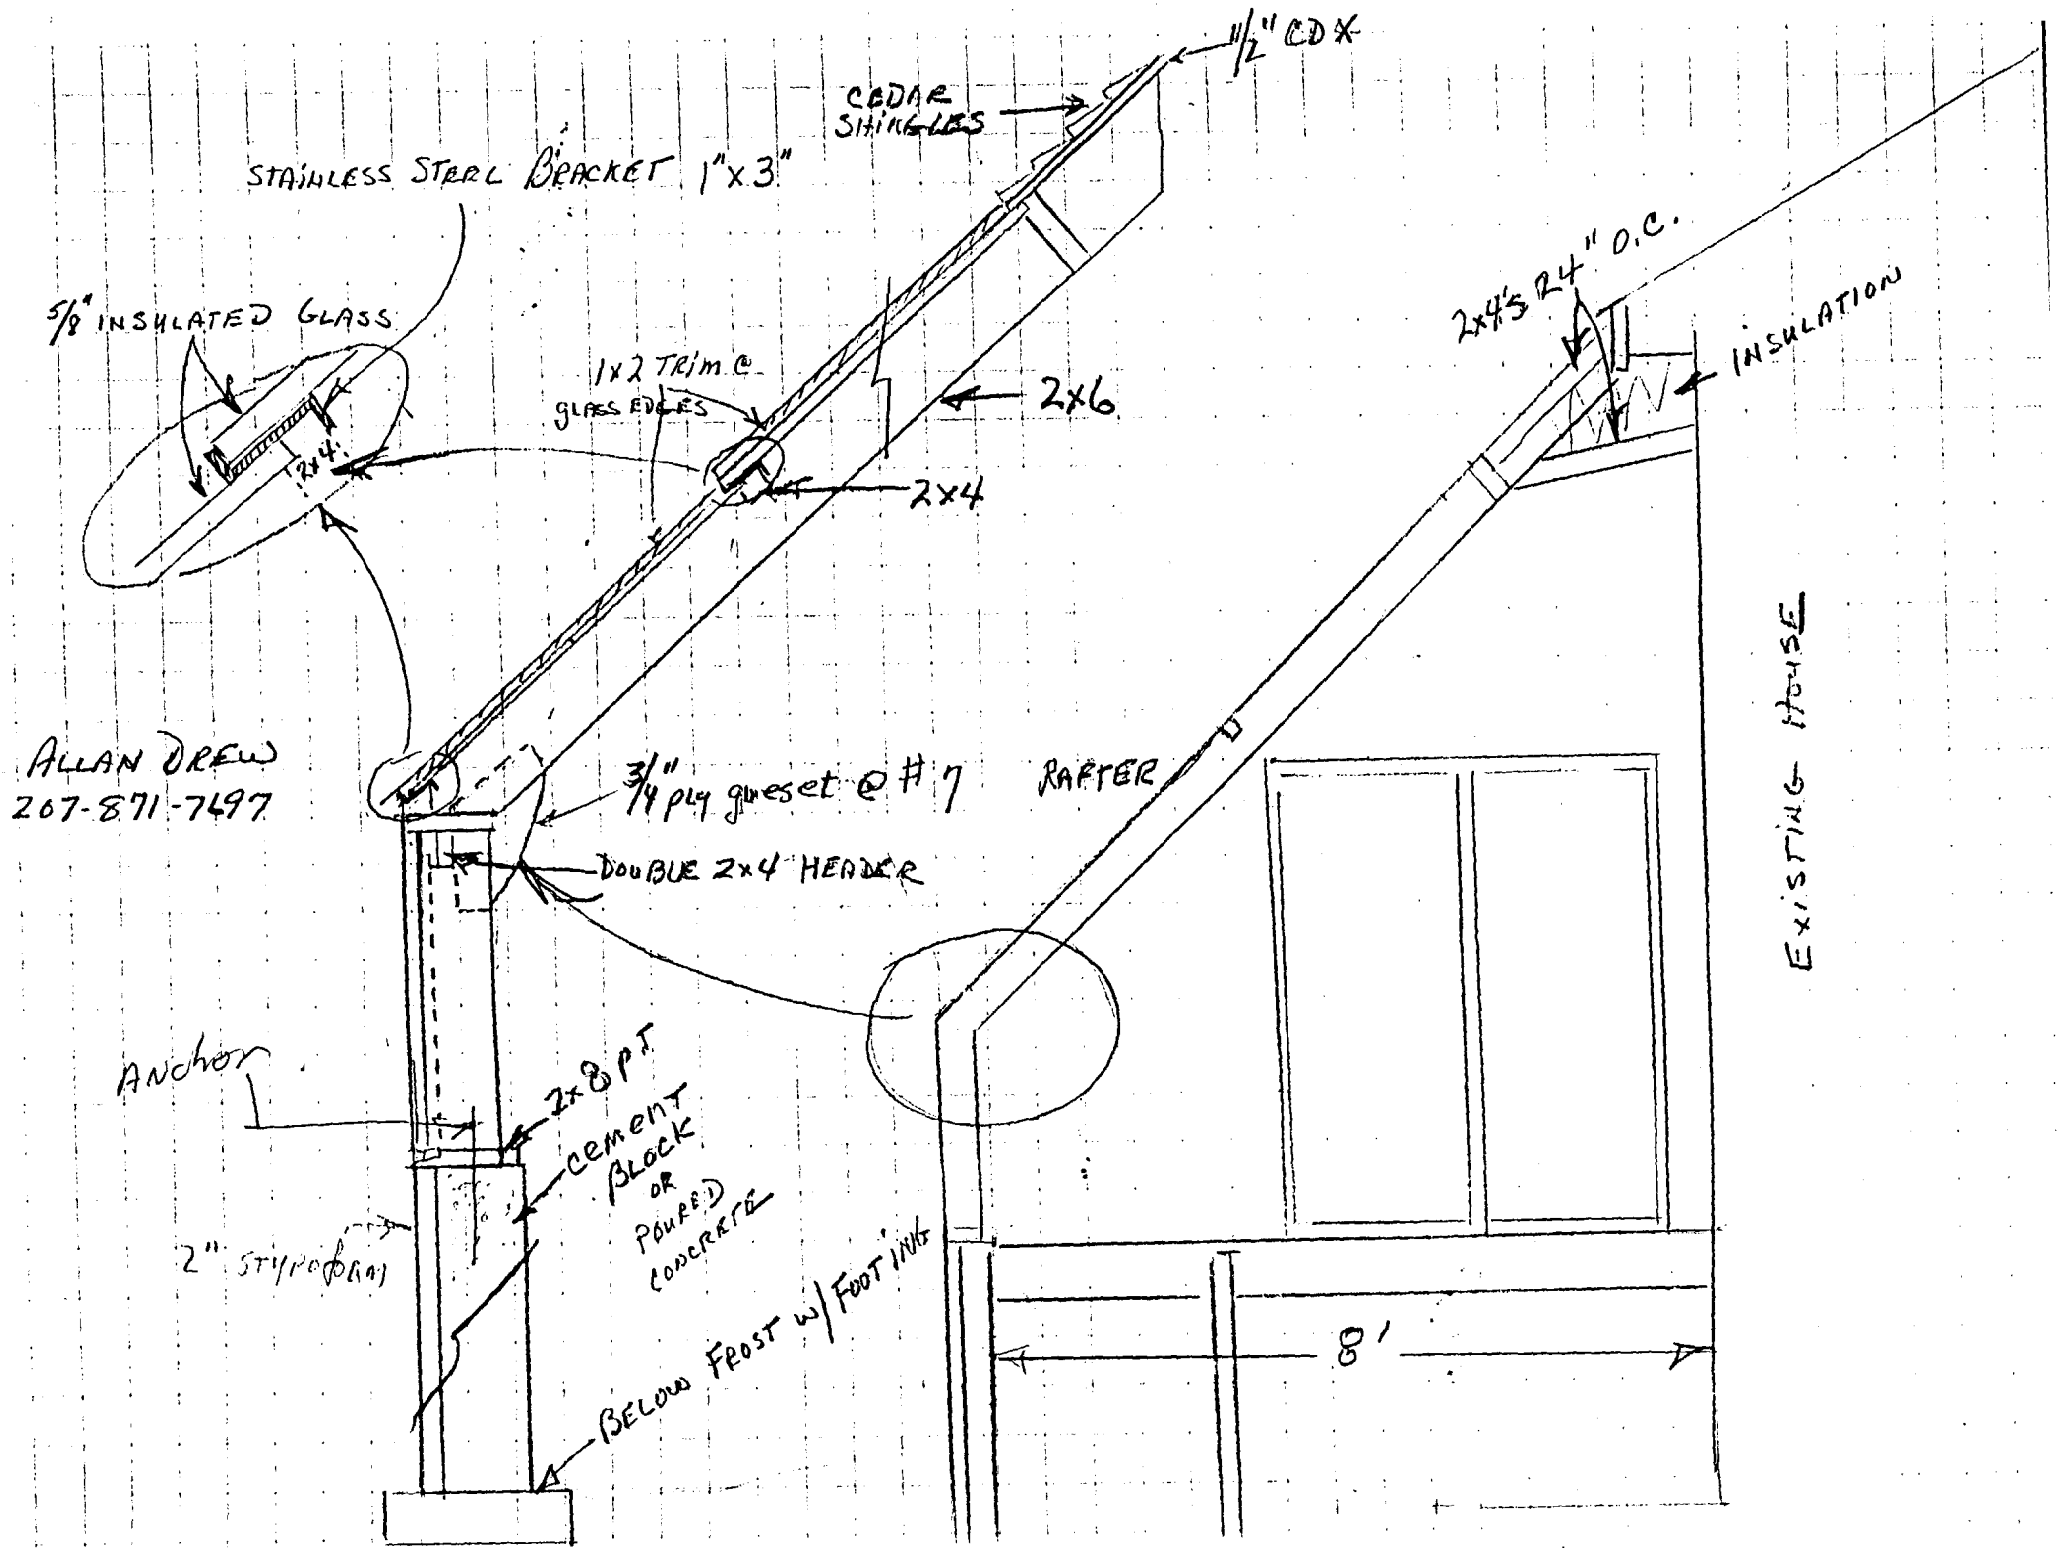 1/2" CDX
CEDAR
SHINGLES
STAINLESS STEEL BRACKET 1"x3"
5/8" INSULATED GLASS
2x4's 24" O.C.
INSULATION
1x2 TRIM @
GLASS EDGES
2x6
2x4
2x4
EXISTING HOUSE
ALLAN DREW
207-871-7697
3/4" ply gusset @ # 7 RAFTER
DOUBLE 2x4 HEADER
Anchor
2x8 P.T
CEMENT
BLOCK
OR
POURED
CONCRETE
2" STYROFOAM
BELOW FROST w/ FOOTING
8'